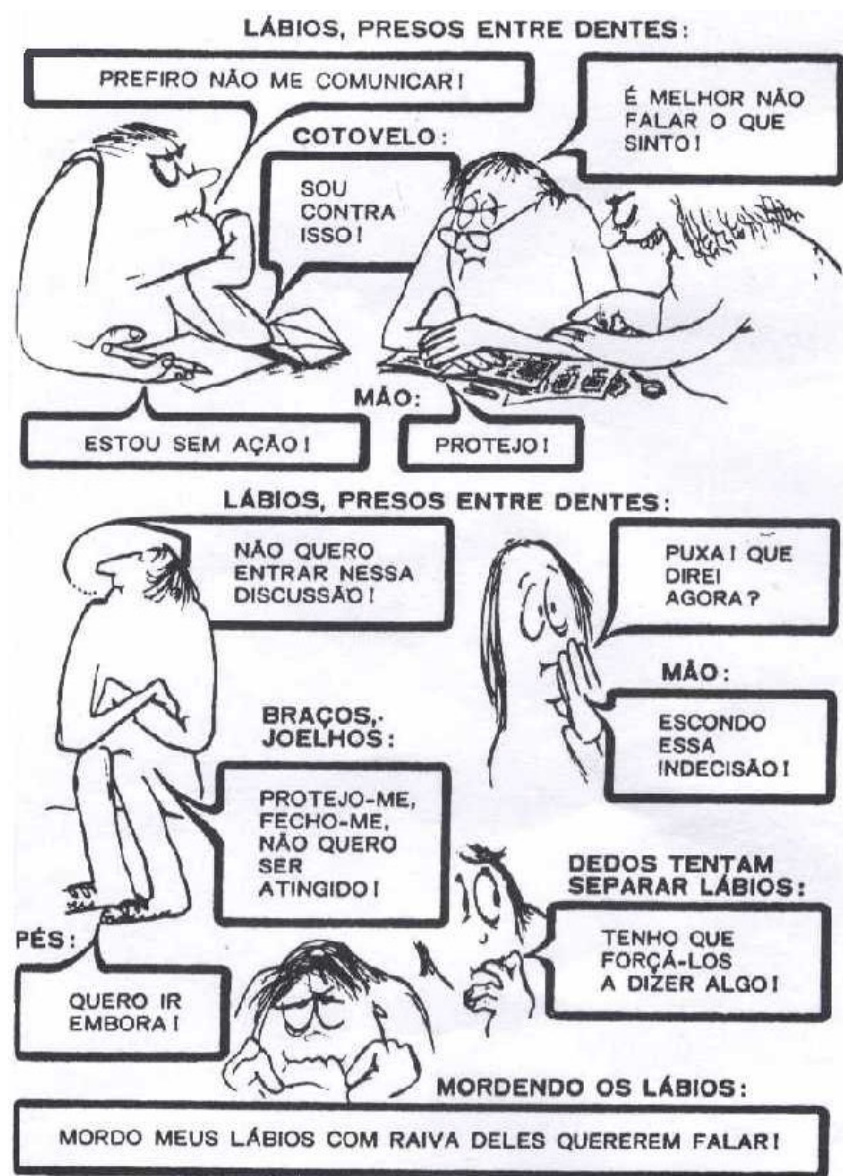 LÁBIOS, PRESOS ENTRE DENTES:
PREFIRO NÃO ME COMUNICAR!
É MELHOR NÃO
FALAR O QUE
SINTO!
COTOVELO:
SOU
CONTRA
ISSO!
MÃO:
ESTOU SEM AÇÃO!
PROTEJO!
LÁBIOS, PRESOS ENTRE DENTES:
NÃO QUERO
ENTRAR NESSA
DISCUSSÃO!
PUXA! QUE
DIREI
AGORA?
MÃO:
ESCONDO
ESSA
INDECISÃO!
BRAÇOS,
JOELHOS:
PROTEJO-ME,
FECHO-ME,
NÃO QUERO
SER
ATINGIDO!
DEDOS TENTAM
SEPARAR LÁBIOS:
TENHO QUE
FORÇÁ-LOS
A DIZER ALGO!
PÉS:
QUERO IR
EMBORA!
MORDENDO OS LÁBIOS:
MORDO MEUS LÁBIOS COM RAIVA DELES QUEREREM FALAR!